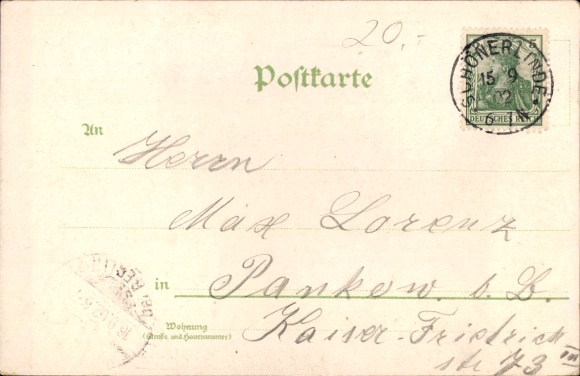 20.-
Postkarte
5
SCHÖNERLINDE
15 9
02
6-7N
DEUTSCHES REICH
An
Herrn
Max Lorenz
in Pankow b. B.
Wohnung
(Straße und Hausnummer)
Kaiser-Friedrich
str 73 III